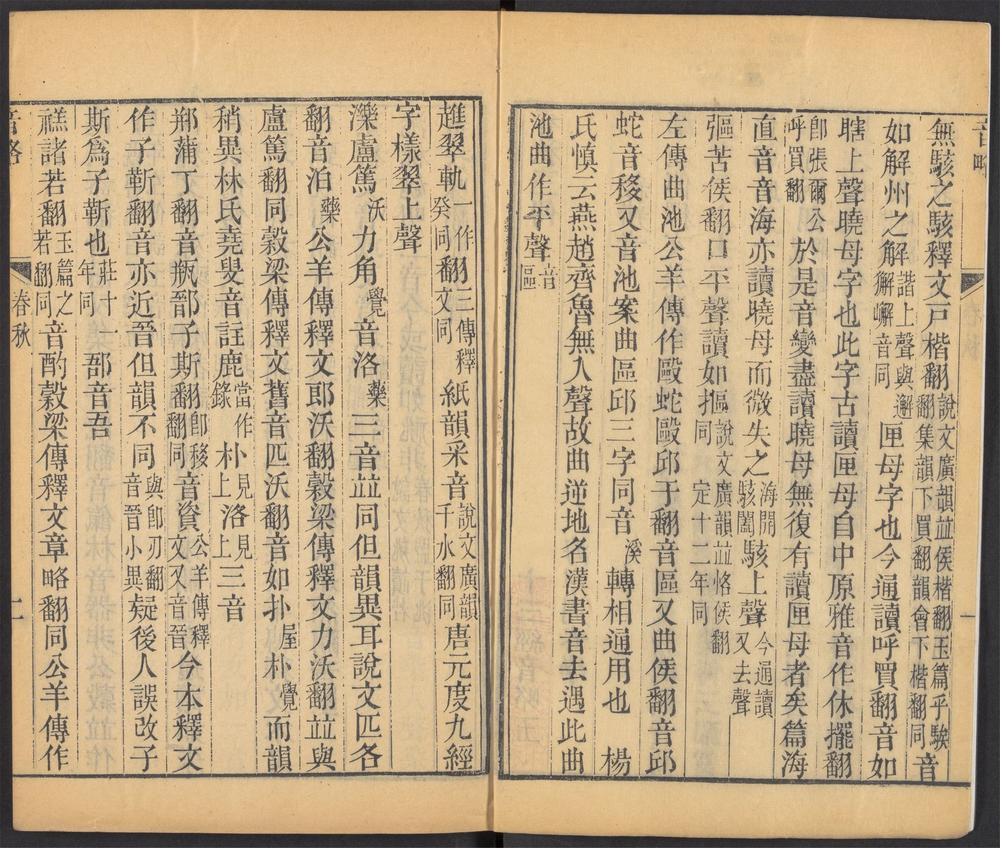 音略
無駭之駭釋文戸楷翻說文廣韻並侯楷翻玉篇乎駭翻集韻下買翻韻會下楷翻同音
如解州之解諧上聲與邂獬嶰音同匣母字也今通讀呼買翻音如
瞎上聲曉母字也此字古讀匣母自中原雅音作休擺翻
卽張爾公呼買翻於是音變盡讀曉母無復有讀匣母者矣篇海
直音音海亦讀曉母而微失之海開駭闔駭上聲今通讀又去聲
彄苦侯翻口平聲讀如摳說文廣韻並恪侯翻同定十二年同
左傳曲池公羊傳作毆蛇毆邱于翻音區又曲侯翻音邱
蛇音移又音池案曲區邱三字同音溪轉相通用也 楊
氏愼云燕趙齊魯無入聲故曲逆地名漢書音去遇此曲
池曲作平聲音區
一
趡翠軌一作癸翻三傳釋文同紙韻采音說文廣韻千水翻同唐元度九經
字樣翠上聲
濼盧篤沃力角覺音洛藥三音並同但韻異耳說文匹各
翻音泊藥公羊傳釋文郎沃翻穀梁傳釋文力沃翻並與
盧篤翻同穀梁傳釋文舊音匹沃翻音如扑屋朴覺而韻
稍異林氏堯叟音註鹿當作錄朴見上洛見上三音
郱蒲丁翻音瓶鄑子斯翻卽移翻同音資公羊傳釋文又音晉今本釋文
作子靳翻音亦近晉但韻不同與卽刃翻音晉小異疑後人誤改子
斯爲子靳也莊十一年同郚音吾
禚諸若翻玉篇之若翻同音酌穀梁傳釋文章略翻同公羊傳作
音略
春秋
二